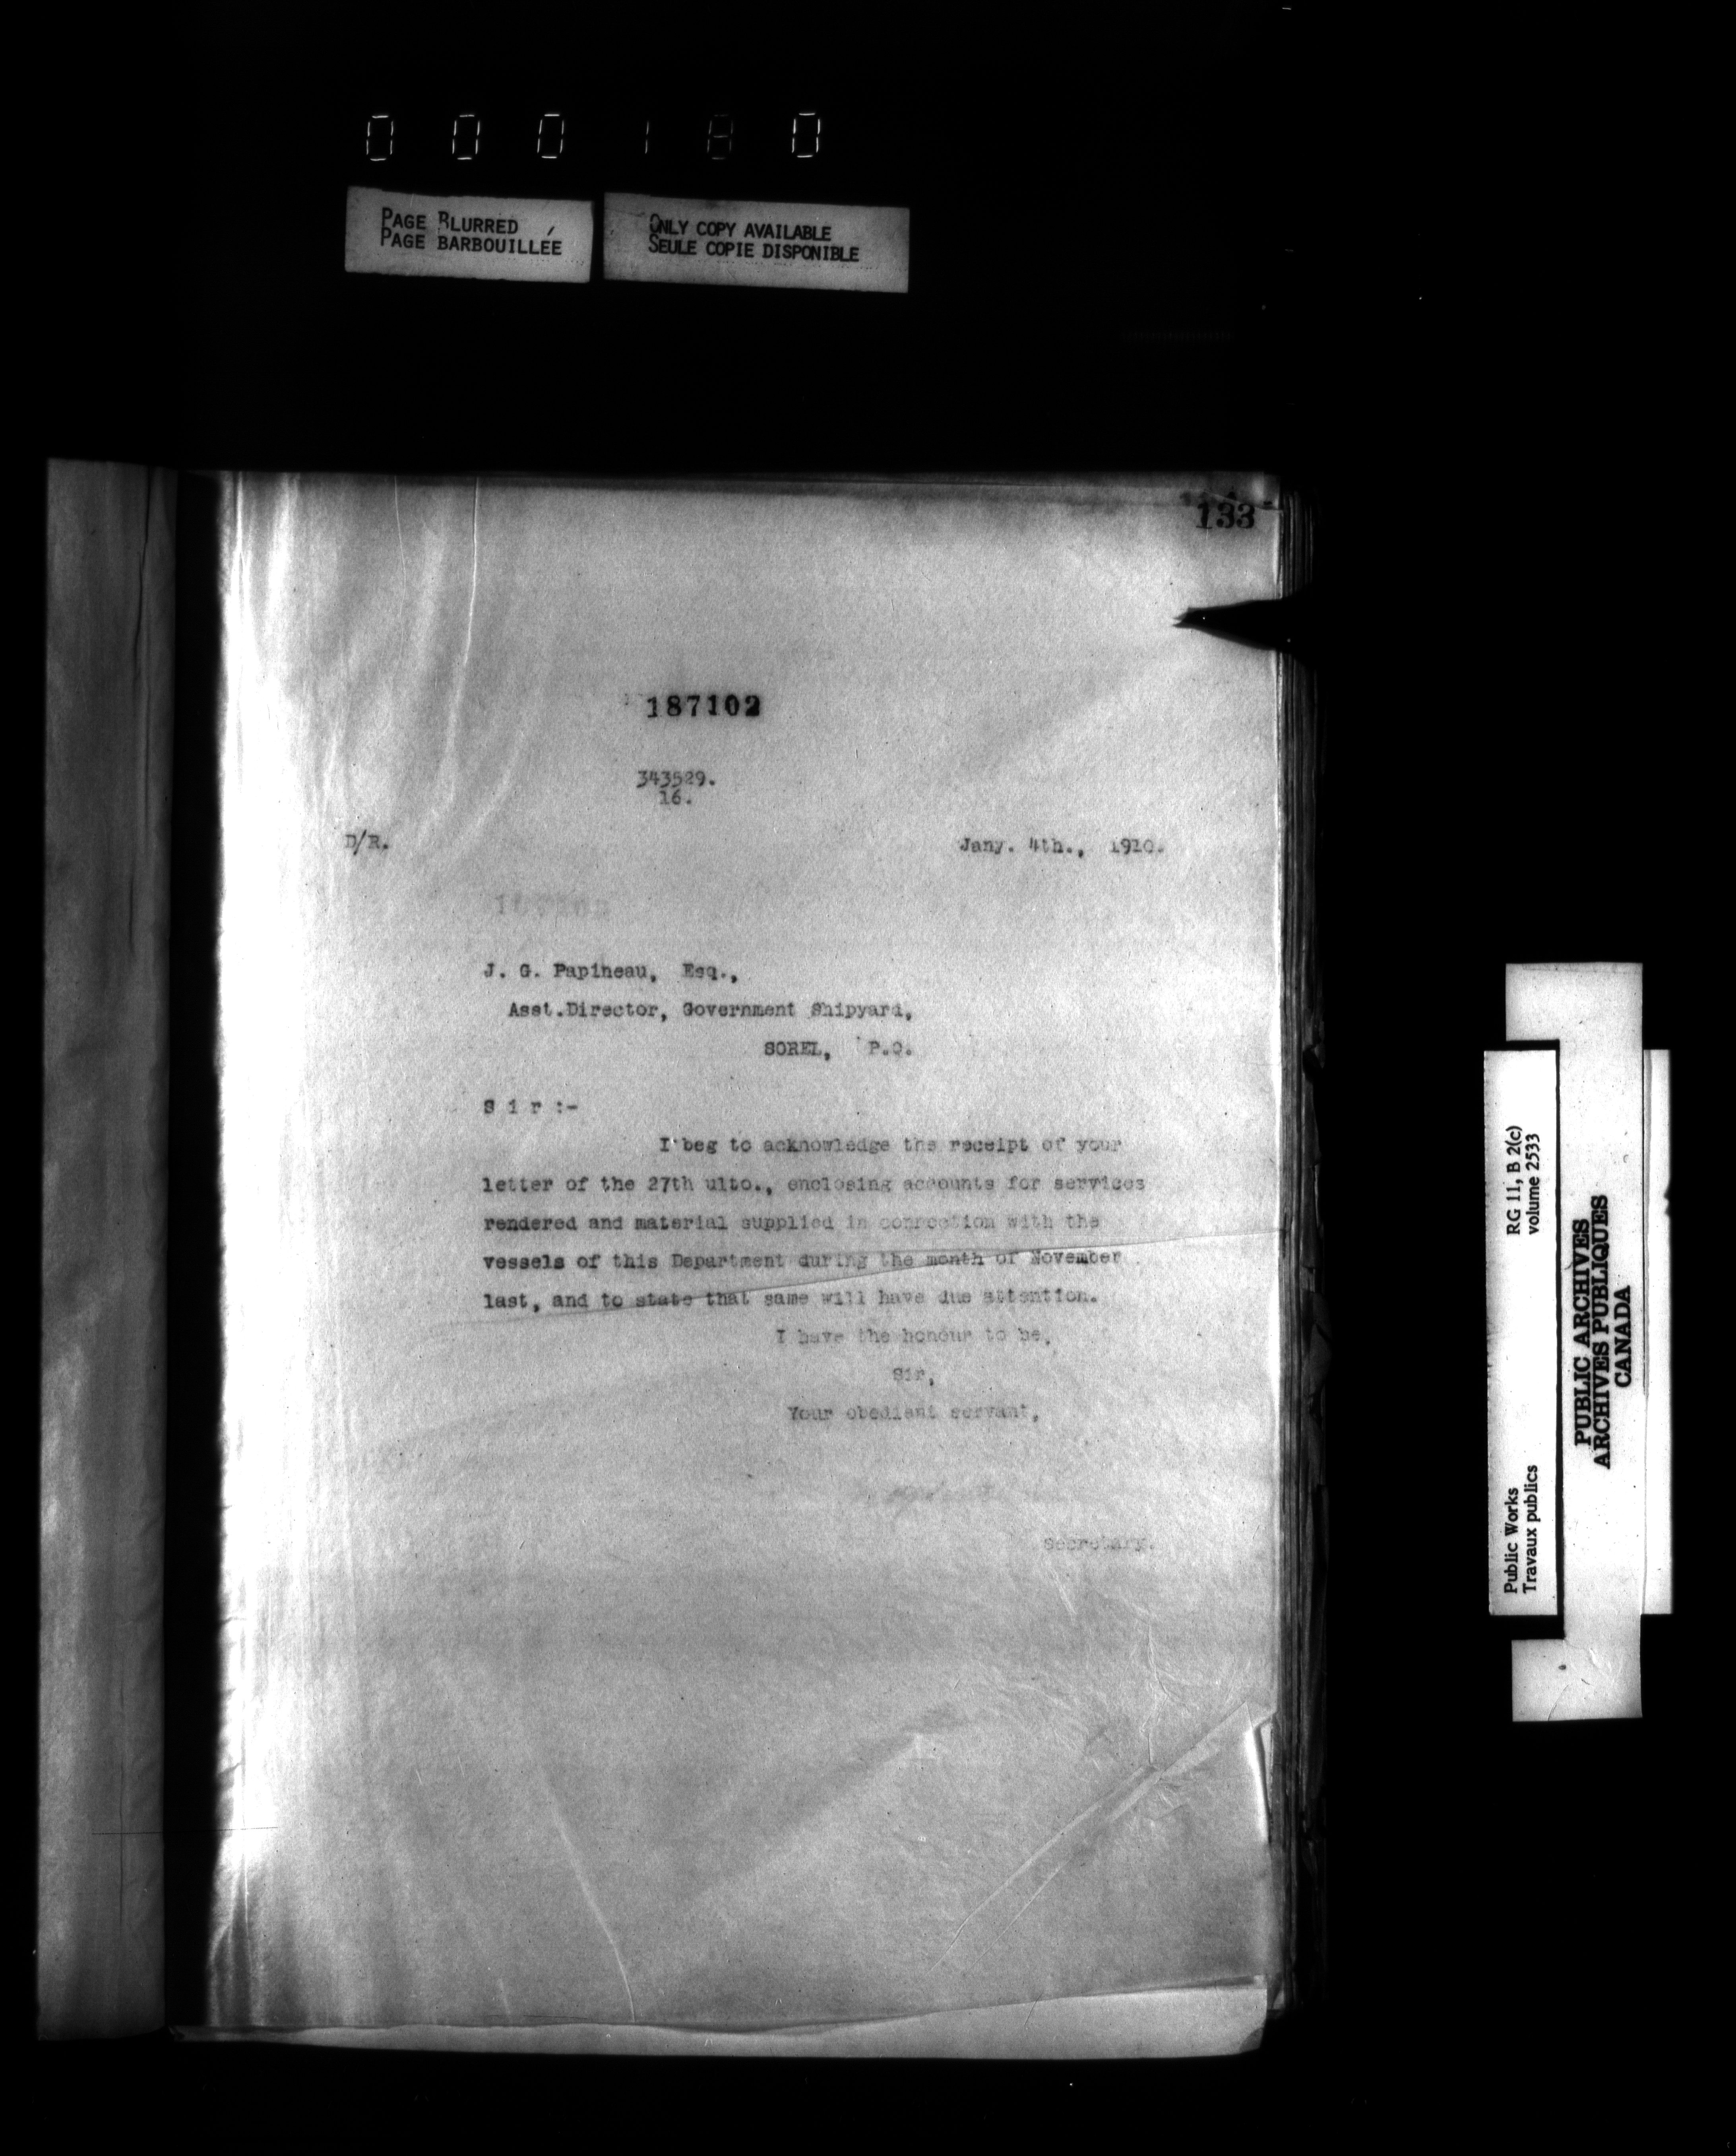 000180
PAGE BLURRED
PAGE BARBOUILLÉE
ONLY COPY AVAILABLE
SEULE COPIE DISPONIBLE
133
187102
343529.
16.
D/R.
Jany. 4th., 1910.
187102
J. G. Papineau, Esq.,
Asst.Director, Government Shipyard,
SOREL, P.Q.
S i r :-
I beg to acknowledge the receipt of your
letter of the 27th ulto., enclosing accounts for services
rendered and material supplied in connection with the
vessels of this Department during the month of November
last, and to state that same will have due attention.
I have the honour to be,
Sir,
Your obedient servant,
Secretary.
RG 11, B 2(c)
volume 2533
Public Works
Travaux publics
PUBLIC ARCHIVES
ARCHIVES PUBLIQUES
CANADA